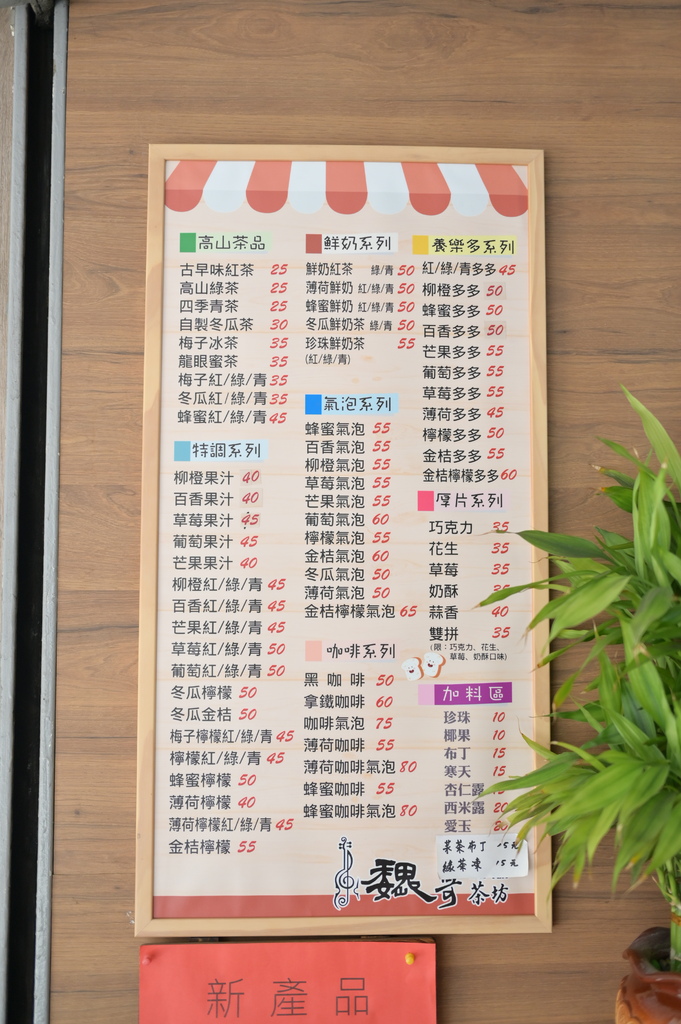 高山茶品
古早味紅茶 25
高山綠茶 25
四季青茶 25
自製冬瓜茶 30
梅子冰茶 35
龍眼蜜茶 35
梅子紅/綠/青 35
冬瓜紅/綠/青 35
蜂蜜紅/綠/青 45
特調系列
柳橙果汁 40
百香果汁 40
草莓果汁 45
葡萄果汁 45
芒果果汁 40
柳橙紅/綠/青 45
百香紅/綠/青 45
芒果紅/綠/青 45
草莓紅/綠/青 50
葡萄紅/綠/青 50
冬瓜檸檬 50
冬瓜金桔 50
梅子檸檬紅/綠/青 45
檸檬紅/綠/青 45
蜂蜜檸檬 50
薄荷檸檬 40
薄荷檸檬紅/綠/青 45
金桔檸檬 55
鮮奶系列
鮮奶紅茶 綠/青 50
薄荷鮮奶 紅/綠/青 50
蜂蜜鮮奶 紅/綠/青 50
冬瓜鮮奶茶 綠/青 50
珍珠鮮奶茶 55
(紅/綠/青)
氣泡系列
蜂蜜氣泡 55
百香氣泡 55
柳橙氣泡 55
草莓氣泡 55
芒果氣泡 55
葡萄氣泡 60
檸檬氣泡 55
金桔氣泡 60
冬瓜氣泡 50
薄荷氣泡 50
金桔檸檬氣泡 65
咖啡系列
黑咖啡 50
拿鐵咖啡 60
咖啡氣泡 75
薄荷咖啡 55
薄荷咖啡氣泡 80
蜂蜜咖啡 55
蜂蜜咖啡氣泡 80
養樂多系列
紅/綠/青多多 45
柳橙多多 50
蜂蜜多多 50
百香多多 50
芒果多多 55
葡萄多多 55
草莓多多 55
薄荷多多 45
檸檬多多 50
金桔多多 55
金桔檸檬多多 60
厚片系列
巧克力 35
花生 35
草莓 35
奶酥 35
蒜香 40
雙拼 35
(限：巧克力、花生、
草莓、奶酥口味)
加料區
珍珠 10
椰果 10
布丁 15
寒天 15
杏仁露 15
西米露 20
愛玉 20
布丁 15元
綠茶凍 15元
魏哥茶坊
新產品